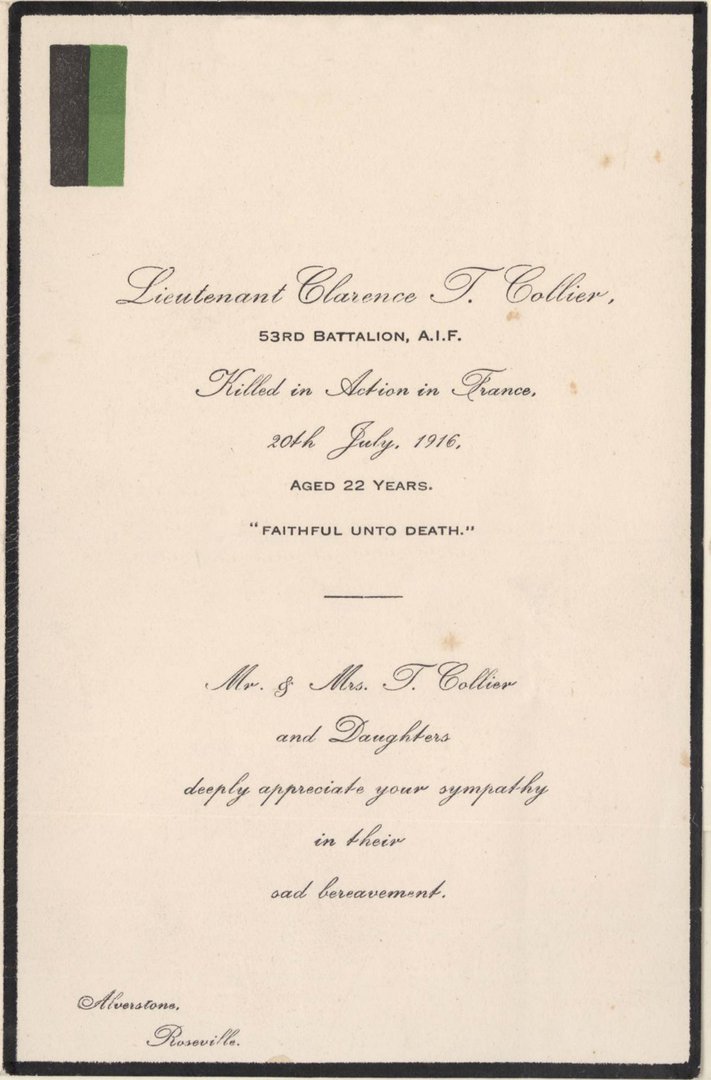 Lieutenant Clarence T. Collier,
53RD BATTALION, A.I.F.
Killed in Action in France,
20th July, 1916,
AGED 22 YEARS.
"FAITHFUL UNTO DEATH."
Mr. & Mrs. T. Collier
and Daughters
deeply appreciate your sympathy
in their
sad bereavement.
Alverstone,
Roseville.